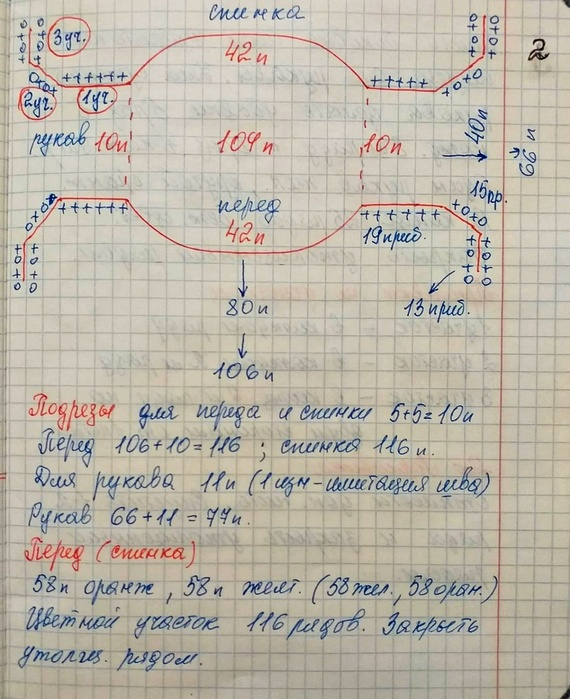 спинка
2
3уч.
42п
+о+о
+о+о
о+о+
++++++
++++
+о+о
2уч.
1уч.
рукав 10п
104п
10п
40п
66п
15пр.
++++++
перед
++++++
+о+о
42п
19приб.
13приб.
80п
106п
Подрезы для переда и спинки 5+5=10п
Перед 106+10=116 ; спинка 116п.
Для рукава 11п (1изн-имитация шва)
Рукав 66+11=77п.
Перед (спинка)
58п оранж, 58п желт. (58жел., 58оран.)
Цветной участок 116 рядов. Закрыть
утолщ. рядом.